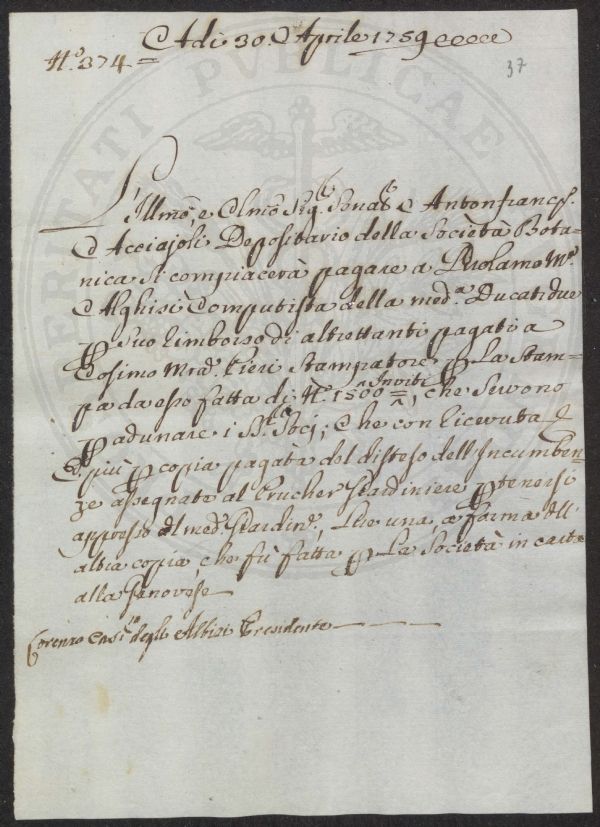 Adi 30. Aprile 1759
N.° 374 =
37
L'Illmo, e Clmo Sig.e Senat.e Antonfranc.o
Acciajoli Depositario della Società Bota=
nica si compiacerà pagare a Girolamo M.a
Alghisi Computista della med.a Ducati due
p suo rimborso di altrettanti pagati a
Cosimo M.a Pieri Stampatore p La Stam=
pa da esso fatta di N.° 1500 = Inviti, che servono
p adunare i SS.ri Socj; Che con ricevuta
E più p copia pagata del disteso dell'Incumben=
ze assegnate al Giardiniere p tenersi
appresso al med.o Giardin.e, che una a forma dell'
altra copia, che fù fatta p La Società in carta
alla Genovese
Lorenzo degli Albizi Presidente
VERITATI PVBLICAE